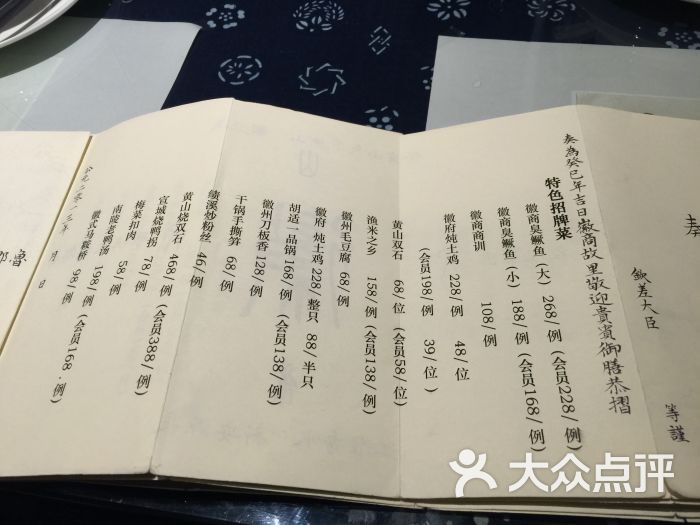 奏
钦差大臣
等謹
奏為癸巳年吉日徽商故里敬迎貴賓御膳恭摺
特色招牌菜
徽商臭鳜鱼(大) 268/例(会员228/例)
徽商臭鳜鱼(小) 188/例(会员168/例)
徽商商训 108/例
徽府炖土鸡 228/例 48/位
(会员198/例 39/位)
黄山双石 68/位(会员58/位)
渔米之乡 158/例(会员138/例)
徽州毛豆腐 68/例
徽府炖土鸡 228/整只 88/半只
胡适一品锅 168/例(会员138/例)
徽州刀板香 128/例
干锅手撕笋 68/例
绩溪炒粉丝 46/例
黄山烧双石 468/例(会员388/例)
宣城烧鸭拐 78/例
梅菜扣肉 58/例
南陵老鸭汤 198/例(会员168.例)
徽式马鞍桥 98/例
公元二零一三年 月 日
魯
大众点评